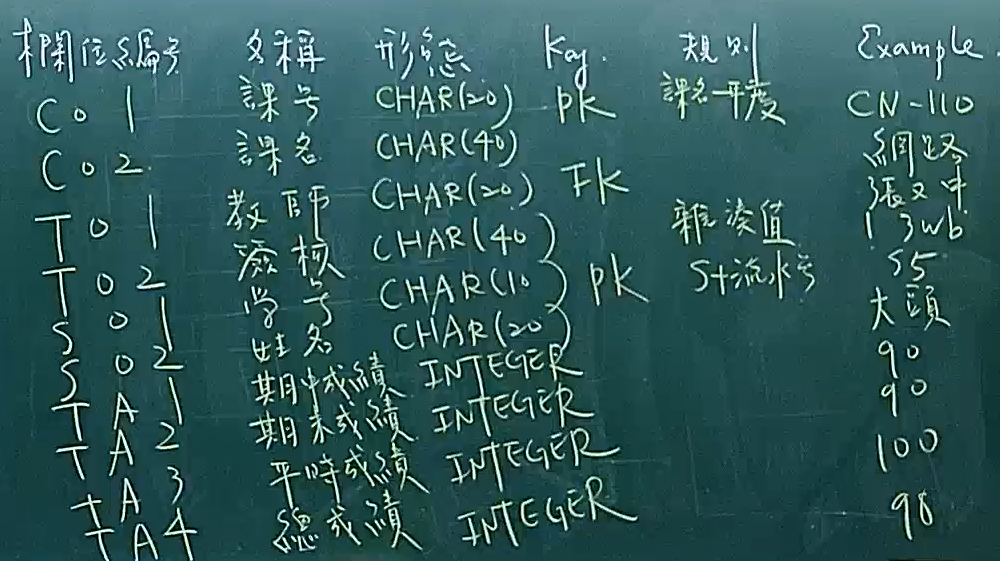 欄位編号 名稱 形態 Key. 規則 Example
C01 課号 CHAR(20) PK 課名-年度 CN-110
C02 課名 CHAR(40) 網路
T01 教師 CHAR(20) FK 張又中
T02 CHAR(40) 雜湊值 13wb
S01 学号 CHAR(10) PK S+流水号 S5
S02 姓名 CHAR(20) 大頭
TA1 期中成績 INTEGER 90
TA2 期末成績 INTEGER 90
TA3 平時成績 INTEGER 100
TA4 總成績 INTEGER 98